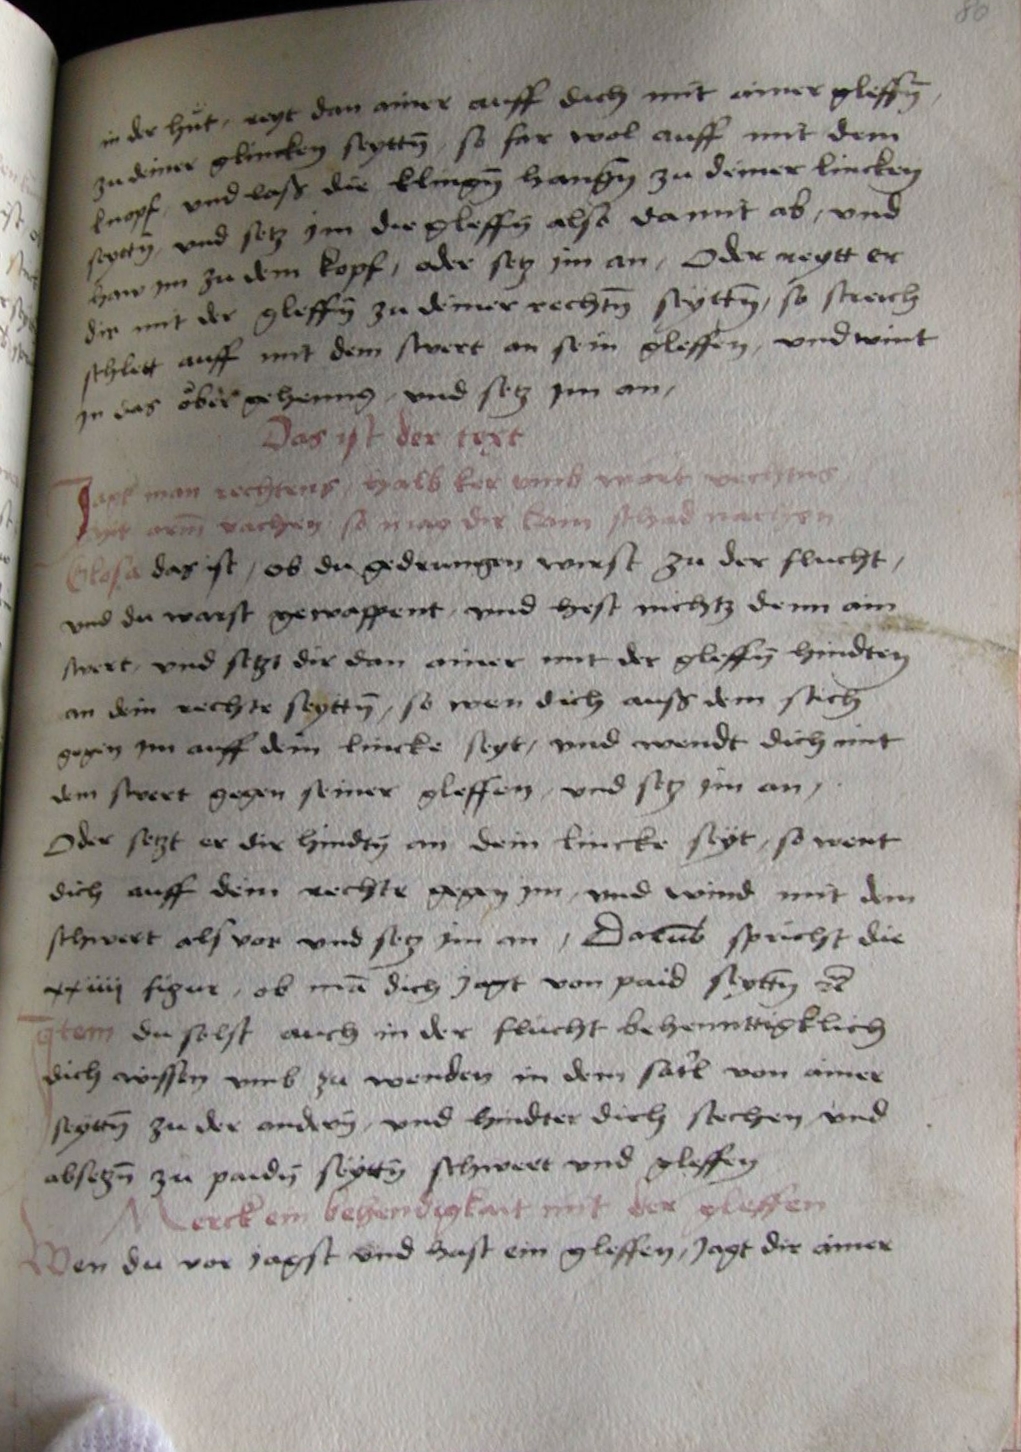 86
in der hůt, reyt dan ainer auff dich mit ainer gleffn̄,
zu deiner glincken seyttn̄, so far wol auff mit dem
knopf, vnd lass die klingn̄ hangn̄ zu deiner lincken
seyttn̄, vnd setz jm die gleffn̄ also damit ab, vnd
haw jm zu dem kopf, oder setz jm an, Oder reytt er
dir mit der gleffn̄ zu deiner rechtn̄ seyttn̄, so streich
schlett auff mit dem swert an sein gleffen, vnd wint
jn das öber gehenng, vnd setz jm an,
Das ist der text
Jagt man rechtens, halb ker vmb wart vechtens
so mag dir kain schad nachen
Glosa das ist, ob du gedrungen wirst zu der flucht,
vnd du warst gewappent, vnd hest nichtz denn ain
swert, vnd setzt dir dan ainer mit der gleffn̄ hindten
an dein rechte seyttn̄, so wen dich auss dem stich
gegen jm auff dein lincke seyt, vnd wendt dich mit
dem swert gegen seiner gleffen, vnd setz jm an,
Oder setzt er dir hindtn̄ an dein lincke seyt, so went
dich auff dein rechte gegen jm, vnd wind mit dem
schwert als vor vnd setz jm an, Darūb spricht die
xxiiii figur, ob mā dich jagt von paid seyttn̄ rc̄
Item du solst auch in der flucht behenttigklich
dich wissen vmb zu wenden in dem satl von ainer
seyttn̄ zu der andern̄, vnd hindter dich stechen vnd
absetzn̄ zu paidn̄ seyttn̄ schwert vnd gleffen
Merck ein behendigkait mit der gleffen
Wen du vor jagst vnd hast ein gleffen, Jagt dir ainer